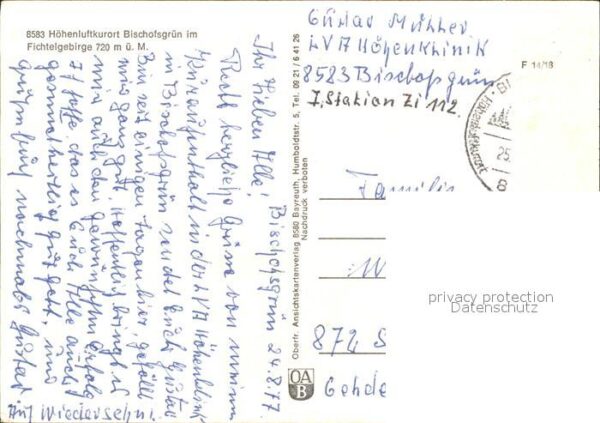 8583 Höhenluftkurort Bischofsgrün im
Fichtelgebirge 720 m ü. M.
Bischofsgrün 24.8.77.
Ihr Lieben Alle!
Recht herzliche Grüsse von meinem
Kuraufenthalt in der LVA Höhenklinik
in Bischofsgrün sendet Euch Gustav
Bin seit einigen Tagen hier, gefällt
mir ganz gut. Hoffentlich bringt es
mir auch den gewünschten Erfolg
Ich hoffe das es Euch Alle auch
gut geht, und
nochmals Gustav.
Auf Wiedersehn.
Oberfr. Ansichtskartenverlag 8580 Bayreuth, Humboldtstr. 5, Tel. 09 21 / 6 41 26
Nachdruck verboten
OA
B
Gustav Müller
LVA Höhenklinik
8583 Bischofsgrün
I. Station Zi 112.
F 14/18
25
8
Familie
W
872 S
Gehde
privacy protection
Datenschutz